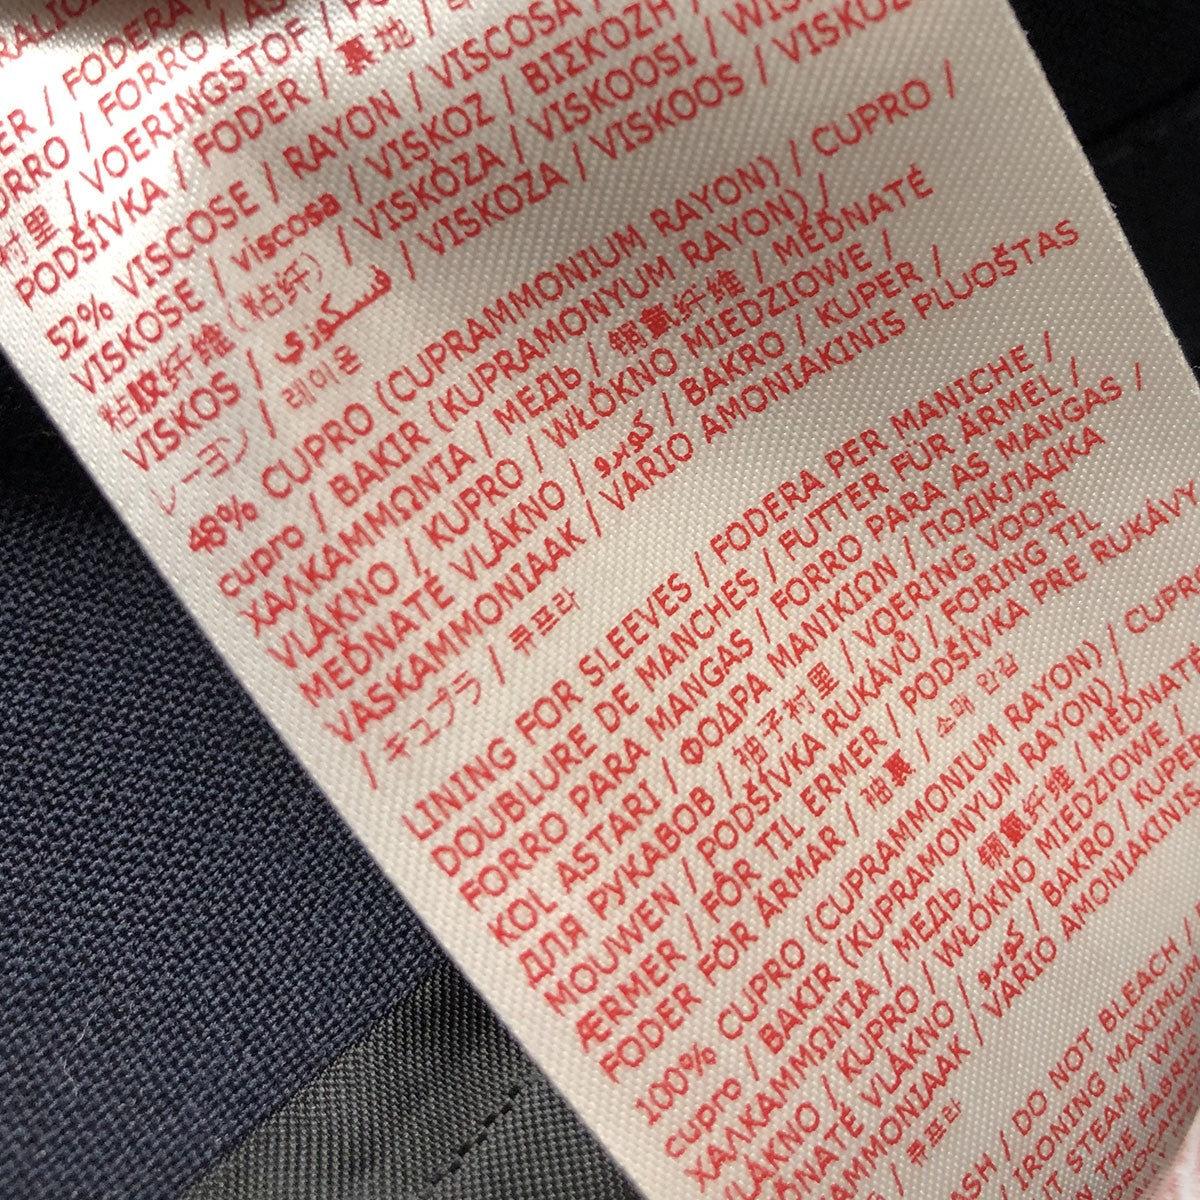 FODERA /
FORRO /
VOERINGSTOF / FO
PODŠÍVKA / FODER / 裏地 /
52% VISCOSE / RAYON / VISCOSA /
VISKOSE / viscosa / VISKOZ / ΒΙΣΚΟΖΗ
粘胶纤维(粘纤) / VISKÓZA / VISKOOSI /
VISKOS / فسكوزي / VISKOZA / VISKOOS / VISKOZ
レーヨン / 레이온
48% CUPRO (CUPRAMMONIUM RAYON) / CUPRO /
cupro / BAKIR (KUPRAMONYUM RAYON) /
ΧΑΛΚΑΜΜΩΝΊΑ / МЕДЬ / 铜氨纤维 / MĚDNATÉ
VLÁKNO / KUPRO / WŁÓKNO MIEDZIOWE /
MEĎNATÉ VLÁKNO / كوبرو / BAKRO / KUPER /
VASKAMMONIAAK / VARIO AMONIAKINIS PLUOŠTAS
/ キュプラ / 큐프라
LINING FOR SLEEVES / FODERA PER MANICHE /
DOUBLURE DE MANCHES / FUTTER FÜR ÄRMEL /
FORRO PARA MANGAS / FORRO PARA AS MANGAS /
KOL ASTARI / ΦΟΔΡΑ ΜΑΝΙΚΙΩΝ / ПОДКЛАДКА
ДЛЯ РУКАВОВ / 袖子衬里 / VOERING VOOR
MOUWEN / PODŠÍVKA RUKÁVŮ / FORING TIL
ÆRMER / FÔR TIL ERMER / PODŠÍVKA PRE RUKÁVY
FODER FÖR ÄRMAR / 袖裏 / 소매 안감
100% CUPRO (CUPRAMMONIUM RAYON) / CUPR
cupro / BAKIR (KUPRAMONYUM RAYON) /
ΧΑΛΚΑΜΜΩΝΊΑ / МЕДЬ / 铜氨纤维 / MĚDNATÉ
VLÁKNO / KUPRO / WŁÓKNO MIEDZIOWE /
NATÉ VLÁKNO / كوبرو / BAKRO / KUPER
AMMONIAAK / VARIO AMONIAKINIS
/ 큐프라
SH / DO NOT BLEACH /
/ IRONING MAXIMUM
T STEAM / WHE
THE FABR